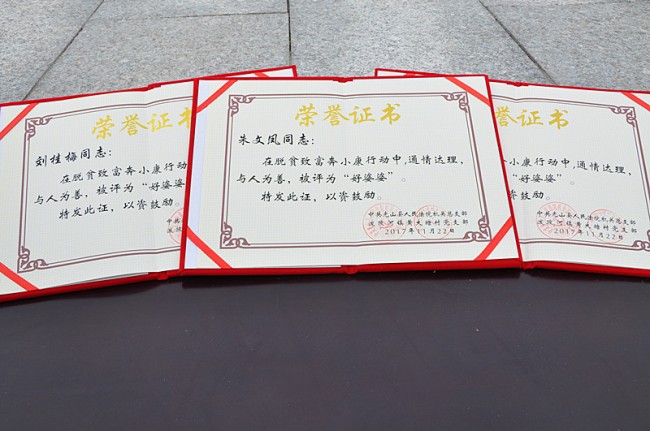 荣誉证书
刘桂梅同志:
在脱贫致富奔小康行动
与人为善,被评为“好婆婆
特发此证,以资鼓励。
中共
荣誉证书
朱文凤同志:
在脱贫致富奔小康行动中,通情达理,
与人为善,被评为“好婆婆”。
特发此证,以资鼓励。
中共光山县人民法院机关总支部
泼陂河镇黄大村党支部
2017年11月22日
誉证书
,通情达理,
好婆婆”。
励。
中共光山县人民法院机关总支部
泼陂河镇黄大村党支部
2017年11月22日